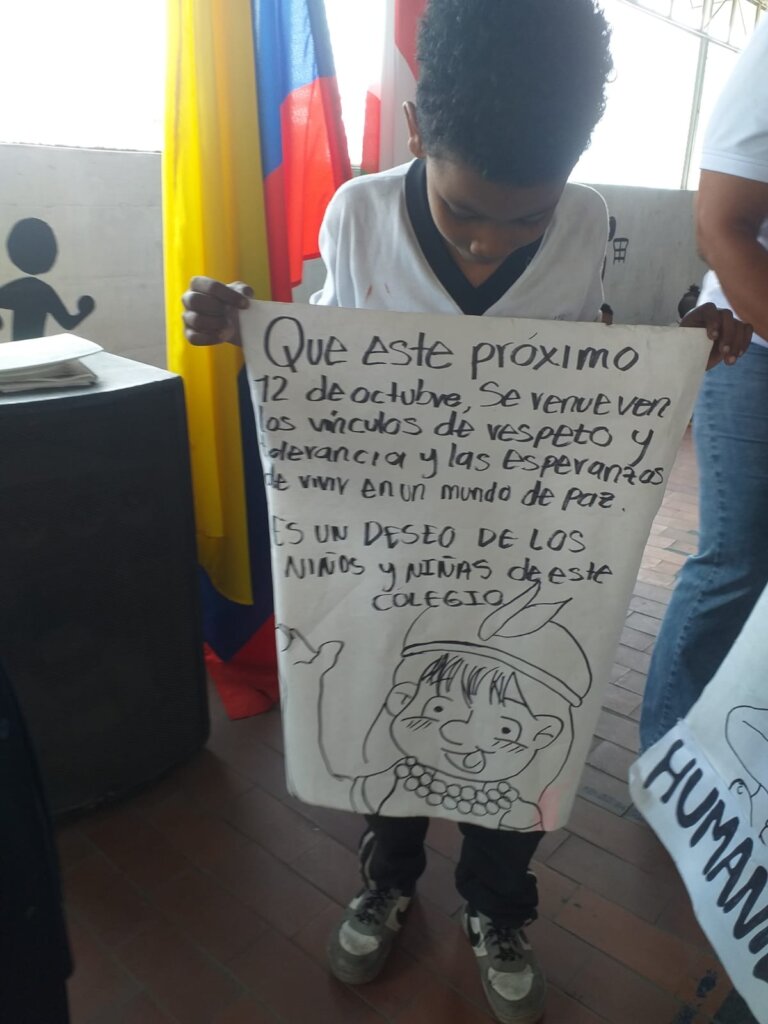 Que este próximo
12 de octubre, se renueven
los vínculos de respeto y
tolerancia y las esperanzas
de vivir en un mundo de paz.
ES UN DESEO DE LOS
NIÑOS y NIÑAS de este
COLEGIO
HUMANI